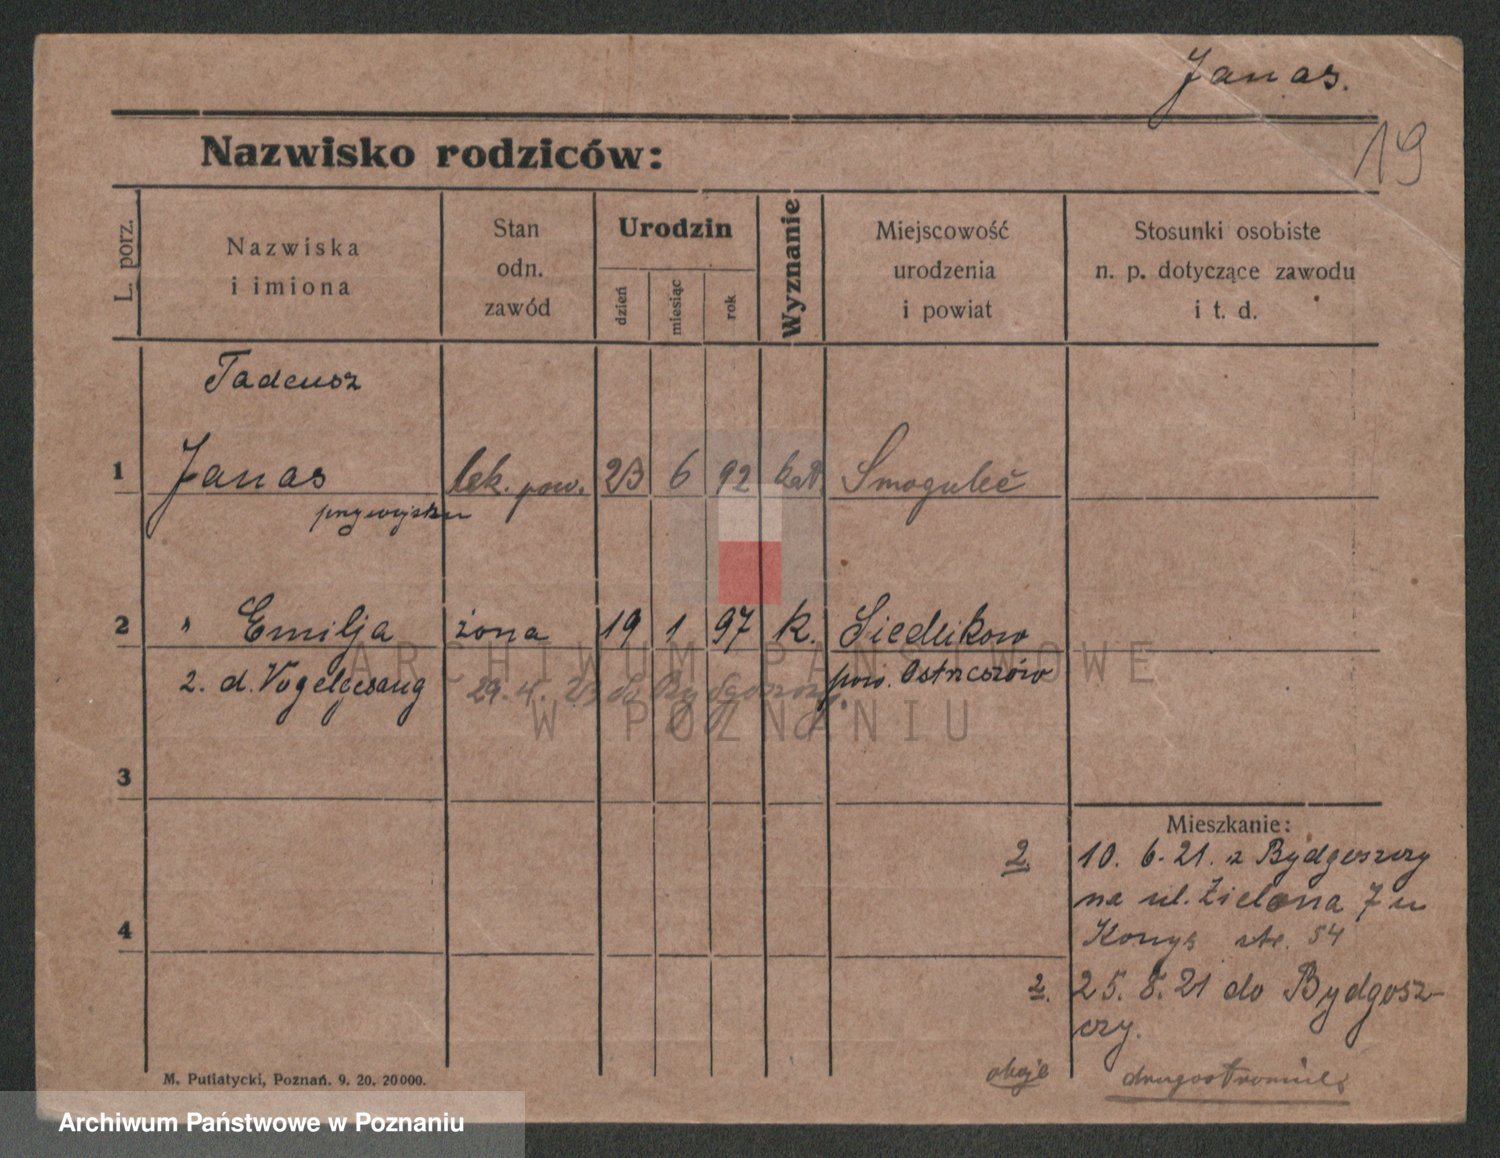 Janas.
19
Nazwisko rodziców:
L. porz.
Nazwiska
i imiona
Stan
odn.
zawód
Urodzin
dzień
miesiąc
rok
Wyznanie
Miejscowość
urodzenia
i powiat
Stosunki osobiste
n. p. dotyczące zawodu
i t. d.
Tadeusz
1 Janas lek. pow. 23 6 92 kat. Smoguleć
przy wojsku
2 " Emilja żona 19 1 97 k. Siedlikow
2. d. Vogelgesang 29. 4. 23 do Bydgoszczy. pow. Ostrzeszów
ARCHIWUM PAŃSTWOWE
W POZNANIU
3
Mieszkanie:
2 10. 6. 21. z Bydgoszczy
na ul. Zielona 7 u
54
4
2. 25. 8. 21 do Bydgosz-
czy.
oboje drugostronnie
M. Putiatycki, Poznań. 9. 20. 20000.
Archiwum Państwowe w Poznaniu